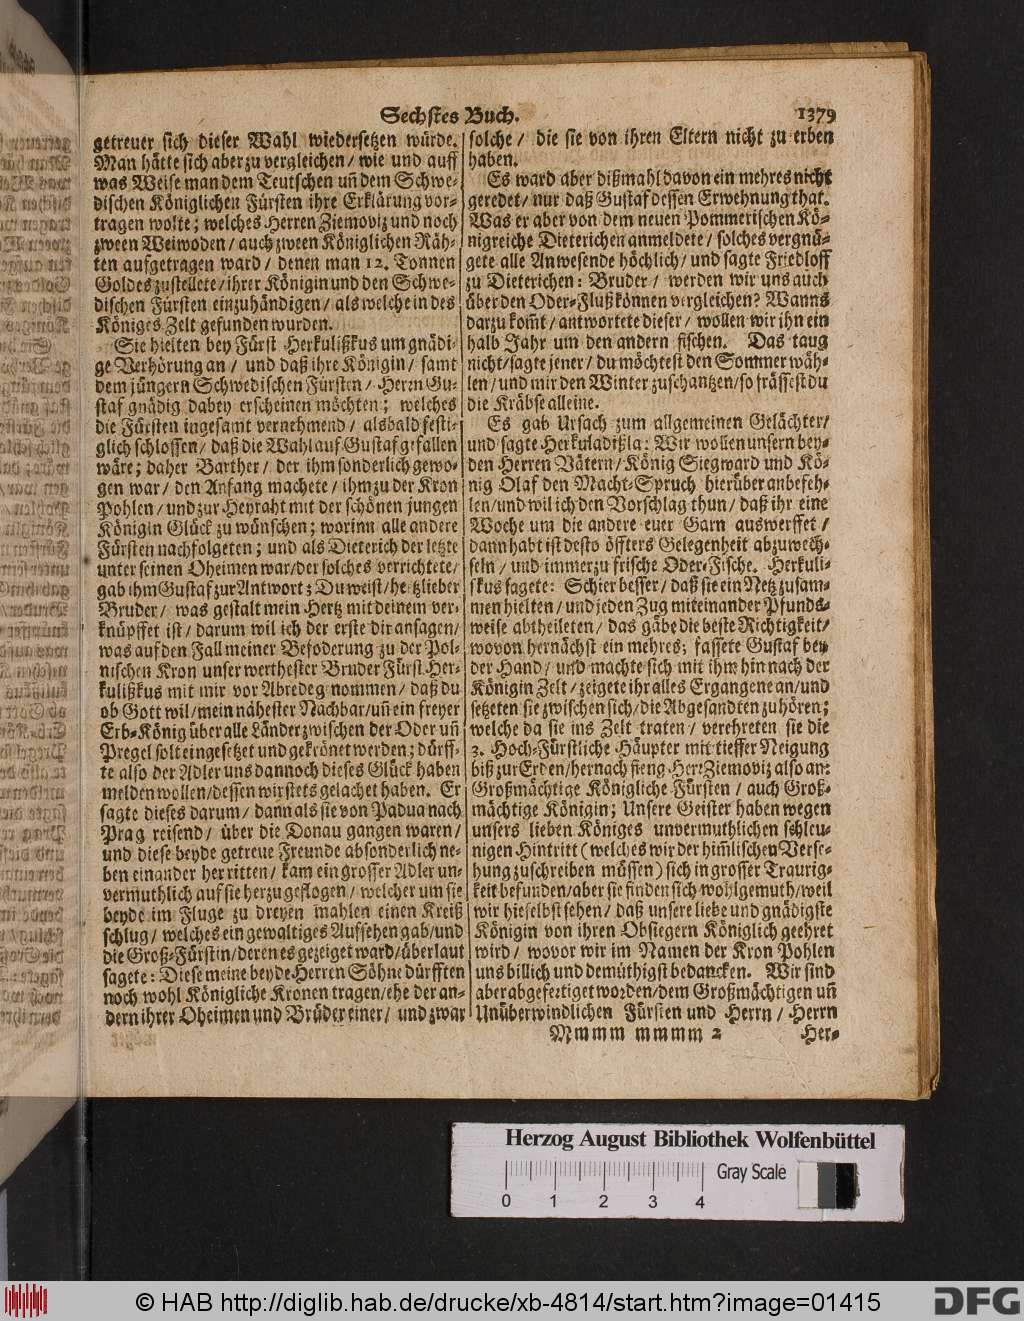 Sechstes Buch. 1379
getreuer sich dieser Wahl wiedersetzen würde.
Man hätte sich aber zu vergleichen / wie und auff
was Weise man dem Teutschen uñ dem Schwe-
dischen Königlichen Fürsten ihre Erklärung vor-
tragen wolte; welches Herren Ziemoviz und noch
zween Weiwoden / auch zween Königlichen Räh-
ten aufgetragen ward / denen man 12. Tonnen
Goldes zustellete / ihrer Königin und den Schwe-
dischen Fürsten einzuhändigen / als welche in des
Königes Zelt gefunden wurden.
Sie hielten bey Fürst Herkulißkus um gnädi-
ge Verhörung an / und daß ihre Königin / samt
dem jüngern Schwedischen Fürsten / Herrn Gu-
staf gnädig dabey erscheinen möchten; welches
die Fürsten ingesamt vernehmend / alsbald festi-
glich schlossen / daß die Wahl auf Gustaf gefallen
wäre; daher Barther / der ihm sonderlich gewo-
gen war / den Anfang machete / ihm zu der Kron
Pohlen / und zur Heyraht mit der schönen jungen
Königin Glück zu wünschen; worinn alle andere
Fürsten nachfolgeten; und als Dieterich der letzte
unter seinen Oheimen war / der solches verrichtete /
gab ihm Gustaf zur Antwort: Du weist / hertzlieber
Bruder / was gestalt mein Hertz mit deinem ver-
knüpffet ist / darum wil ich der erste dir ansagen /
was auf den Fall meiner Befoderung zu der Pol-
nischen Kron unser werthester Bruder Fürst Her-
kulißkus mit mir vor Abrede genommen / daß du
ob Gott wil / mein nähester Nachbar / uñ ein freyer
Erb-König über alle Länder zwischen der Oder uñ
Pregel solt eingesetzet und gekrönet werden; dürff-
te also der Adler uns dannoch dieses Glück haben
melden wollen / dessen wir stets gelachet haben. Er
sagte dieses darum / dann als sie von Padua nach
Prag reisend / über die Donau gangen waren /
und diese beyde getreue Freunde absonderlich ne-
ben einander her ritten / kam ein grosser Adler un-
vermuthlich auf sie herzu geflogen / welcher um sie
beyde im Fluge zu dreyen mahlen einen Kreiß
schlug / welches ein gewaltiges Aufsehen gab / und
die Groß-Fürstin / deren es gezeiget ward / überlaut
sagete: Diese meine beyde Herren Söhne dürfften
noch wohl Königliche Kronen tragen / ehe der an-
dern ihrer Oheimen und Brüder einer / und zwar
solche / die sie von ihren Eltern nicht zu erben
haben.
Es ward aber dißmahl davon ein mehres nicht
geredet / nur daß Gustaf dessen Erwehnung that.
Was er aber von dem neuen Pommerischen Kö-
nigreiche Dieterichen anmeldete / solches vergnü-
gete alle Anwesende höchlich / und sagte Friedloff
zu Dieterichen: Bruder / werden wir uns auch
über den Oder-Fluß können vergleichen? Wanns
darzu kom̃t / antwortete dieser / wollen wir ihn ein
halb Jahr um den andern fischen. Das taug
nicht / sagte jener / du möchtest den Sommer wäh-
len / und mir den Winter zuschantzen / so frässest du
die Kräbse alleine.
Es gab Ursach zum allgemeinen Gelächter /
und sagte Herkuladißla: Wir wollen unsern bey-
den Herren Vätern / König Siegward und Kö-
nig Olaf den Macht-Spruch hierüber anbefeh-
len / und wil ich den Vorschlag thun / daß ihr eine
Woche um die andere euer Garn auswerffet /
dann habt ist desto öffters Gelegenheit abzuwech-
seln / und immerzu frische Oder-Fische. Herkuli-
skus sagete: Schier besser / daß sie ein Netz zusam-
men hielten / und jeden Zug miteinander Pfunds-
weise abtheileten / das gäbe die beste Richtigkeit /
wovon hernächst ein mehres; fassete Gustaf bey
der Hand / und machte sich mit ihm hin nach der
Königin Zelt / zeigete ihr alles Ergangene an / und
setzeten sie zwischen sich / die Abgesandten zu hören;
welche da sie ins Zelt traten / verehreten sie die
3. Hoch-Fürstliche Häupter mit tieffer Neigung
biß zur Erden / hernach fieng Herr Ziemoviz also an:
Großmächtige Königliche Fürsten / auch Groß-
mächtige Königin; Unsere Geister haben wegen
unsers lieben Königes unvermuthlichen schleu-
nigen Hintritt (welches wir der him̃lischen Verse-
hung zuschreiben müssen) sich in grosser Traurig-
keit befunden / aber sie finden sich wohlgemuth / weil
wir hieselbst sehen / daß unsere liebe und gnädigste
Königin von ihren Obsiegern Königlich geehret
wird / wovor wir im Namen der Kron Pohlen
uns billich und demüthigst bedancken. Wir sind
aber abgefertiget worden / dem Großmächtigen uñ
Unüberwindlichen Fürsten und Herrn / Herrn
Mmmm mmmm 2 Her-
Herzog August Bibliothek Wolfenbüttel
Gray Scale
0 1 2 3 4
© HAB http://diglib.hab.de/drucke/xb-4814/start.htm?image=01415
DFG